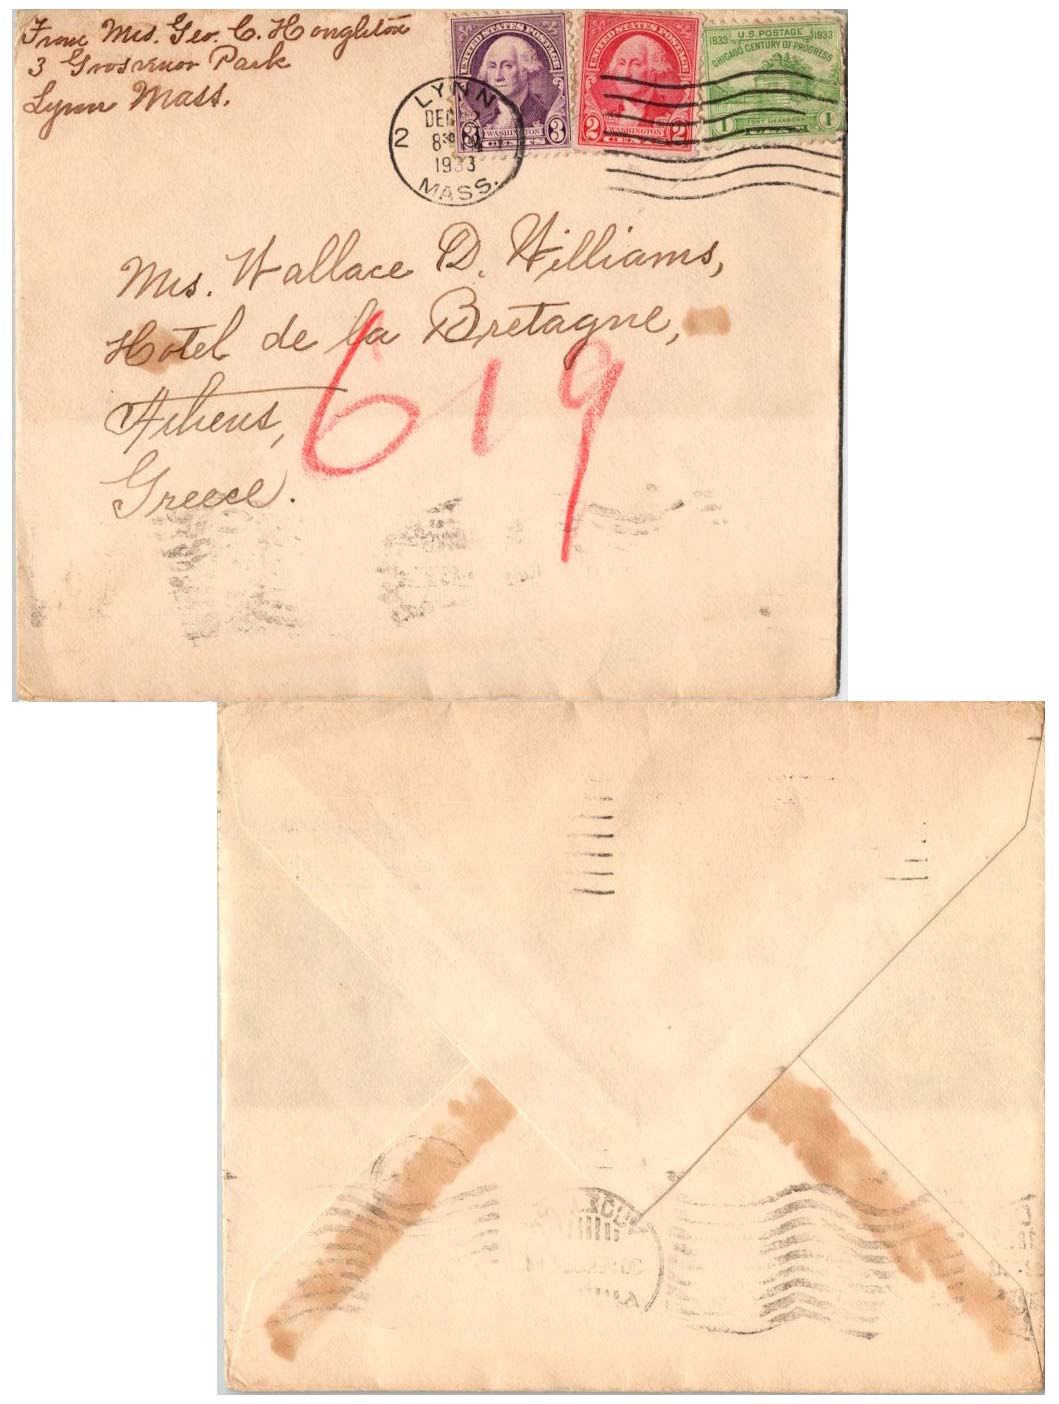 From Mrs. Geo. C. Houghton
3 Grosvenor Park
Lynn Mass.
UNITED STATES POSTAGE
3 WASHINGTON 3
CENTS
UNITED STATES POSTAGE
2 WASHINGTON 2
CENTS
U.S. POSTAGE
1833 1933
CHICAGO CENTURY OF PROGRESS
FORT DEARBORN
1 1
LYNN
DEC
2 8 30
1933
MASS.
Mrs. Wallace D. Williams,
Hotel de la Bretagne,
Athens,
Greece.
619